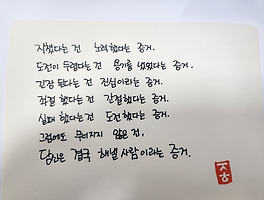 지쳤다는 건 노력했다는 증거.
도전이 두렵다는 건 용기를 냈었다는 증거.
긴장 된다는 건 진심이라는 증거.
좌절 했다는 건 간절했다는 증거.
실패 했다는 건 도전했다는 증거.
그럼에도 무너지지 않은 건,
당신은 결국 해낼 사람이라는 증거.